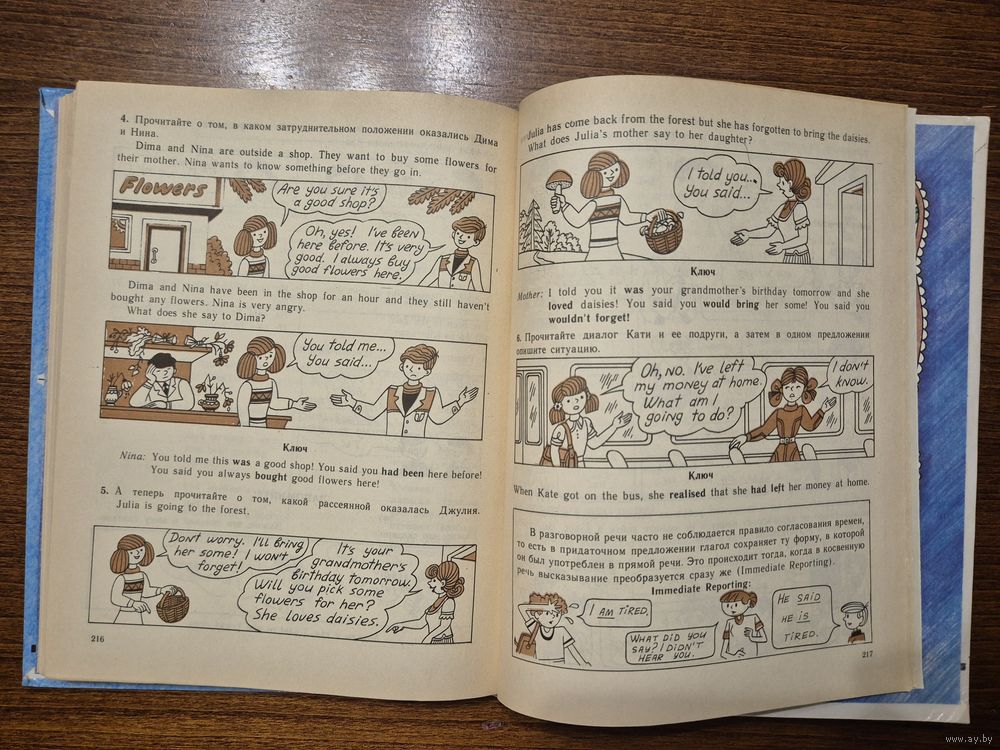 4. Прочитайте о том, в каком затруднительном положении оказались Дима
и Нина.
Dima and Nina are outside a shop. They want to buy some flowers for
their mother. Nina wants to know something before they go in.
Flowers
Are you sure it's
a good shop?
Oh, yes! I've been
here before. It's very
good. I always buy
good flowers here.
Dima and Nina have been in the shop for an hour and they still haven't
bought any flowers. Nina is very angry.
What does she say to Dima?
You told me...
You said...
Ключ
Nina: You told me this was a good shop! You said you had been here before!
You said you always bought good flowers here!
5. А теперь прочитайте о том, какой рассеянной оказалась Джулия.
Julia is going to the forest.
Don't worry. I'll bring
her some! I won't
forget!
It's your
grandmother's
birthday tomorrow.
Will you pick some
flowers for her?
She loves daisies.
216
Julia has come back from the forest but she has forgotten to bring the daisies.
What does Julia's mother say to her daughter?
I told you...
You said...
Ключ
Mother: I told you it was your grandmother's birthday tomorrow and she
loved daisies! You said you would bring her some! You said you
wouldn't forget!
6. Прочитайте диалог Кати и ее подруги, а затем в одном предложении
опишите ситуацию.
Oh, no. I've left
my money at home.
What am I
going to do?
I don't
know.
Ключ
When Kate got on the bus, she realised that she had left her money at home.
В разговорной речи часто не соблюдается правило согласования времен,
то есть в придаточном предложении глагол сохраняет ту форму, в которой
он был употреблен в прямой речи. Это происходит тогда, когда в косвенную
речь высказывание преобразуется сразу же (Immediate Reporting).
Immediate Reporting:
I AM TIRED.
WHAT DID YOU
SAY? I DIDN'T
HEAR YOU.
HE SAID
HE IS
TIRED.
217
www.ay.by